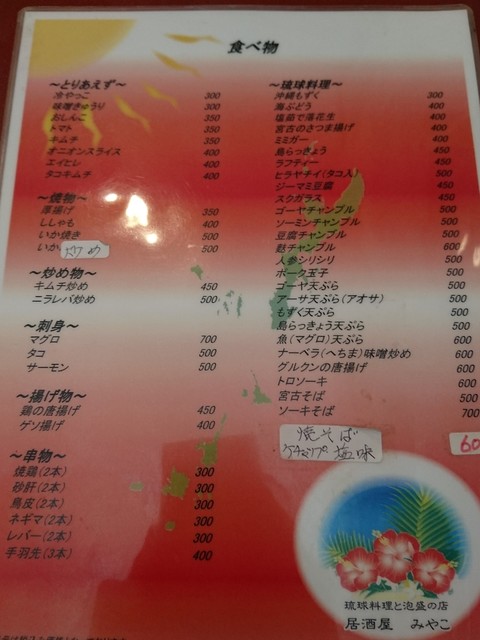 食べ物
～とりあえず～
冷やっこ 300
味噌きゅうり 300
おしんこ 350
トマト 350
キムチ 350
オニオンスライス 400
エイヒレ 400
タコキムチ 400
～焼物～
厚揚げ 350
ししゃも 400
いか焼き 500
いか 炒め 500
～炒め物～
キムチ炒め 450
ニラレバ炒め 500
～刺身～
マグロ 700
タコ 500
サーモン 500
～揚げ物～
鶏の唐揚げ 450
ゲソ揚げ 400
～串物～
焼鶏(2本) 300
砂肝(2本) 300
鳥皮(2本) 300
ネギマ(2本) 300
レバー(2本) 300
手羽先(3本) 400
～琉球料理～
沖縄もずく 300
海ぶどう 400
塩茹で落花生 400
宮古のさつま揚げ 400
ミミガー 400
島らっきょう 450
ラフティー 450
ヒラヤチイ(タコ入) 500
ジーマミ豆腐 450
スクガラス 450
ゴーヤチャンプル 500
ソーミンチャンプル 500
豆腐チャンプル 500
麩チャンプル 600
人参シリシリ 500
ポーク玉子 500
ゴーヤ天ぷら 500
アーサ天ぷら(アオサ) 500
もずく天ぷら 500
島らっきょう天ぷら 500
魚(マグロ)天ぷら 500
ナーベラ(へちま)味噌炒め 600
グルクンの唐揚げ 600
トロソーキ 600
宮古そば 500
ソーキそば 700
焼そば 60
ケチャップ 塩味
琉球料理と泡盛の店
居酒屋 みやこ